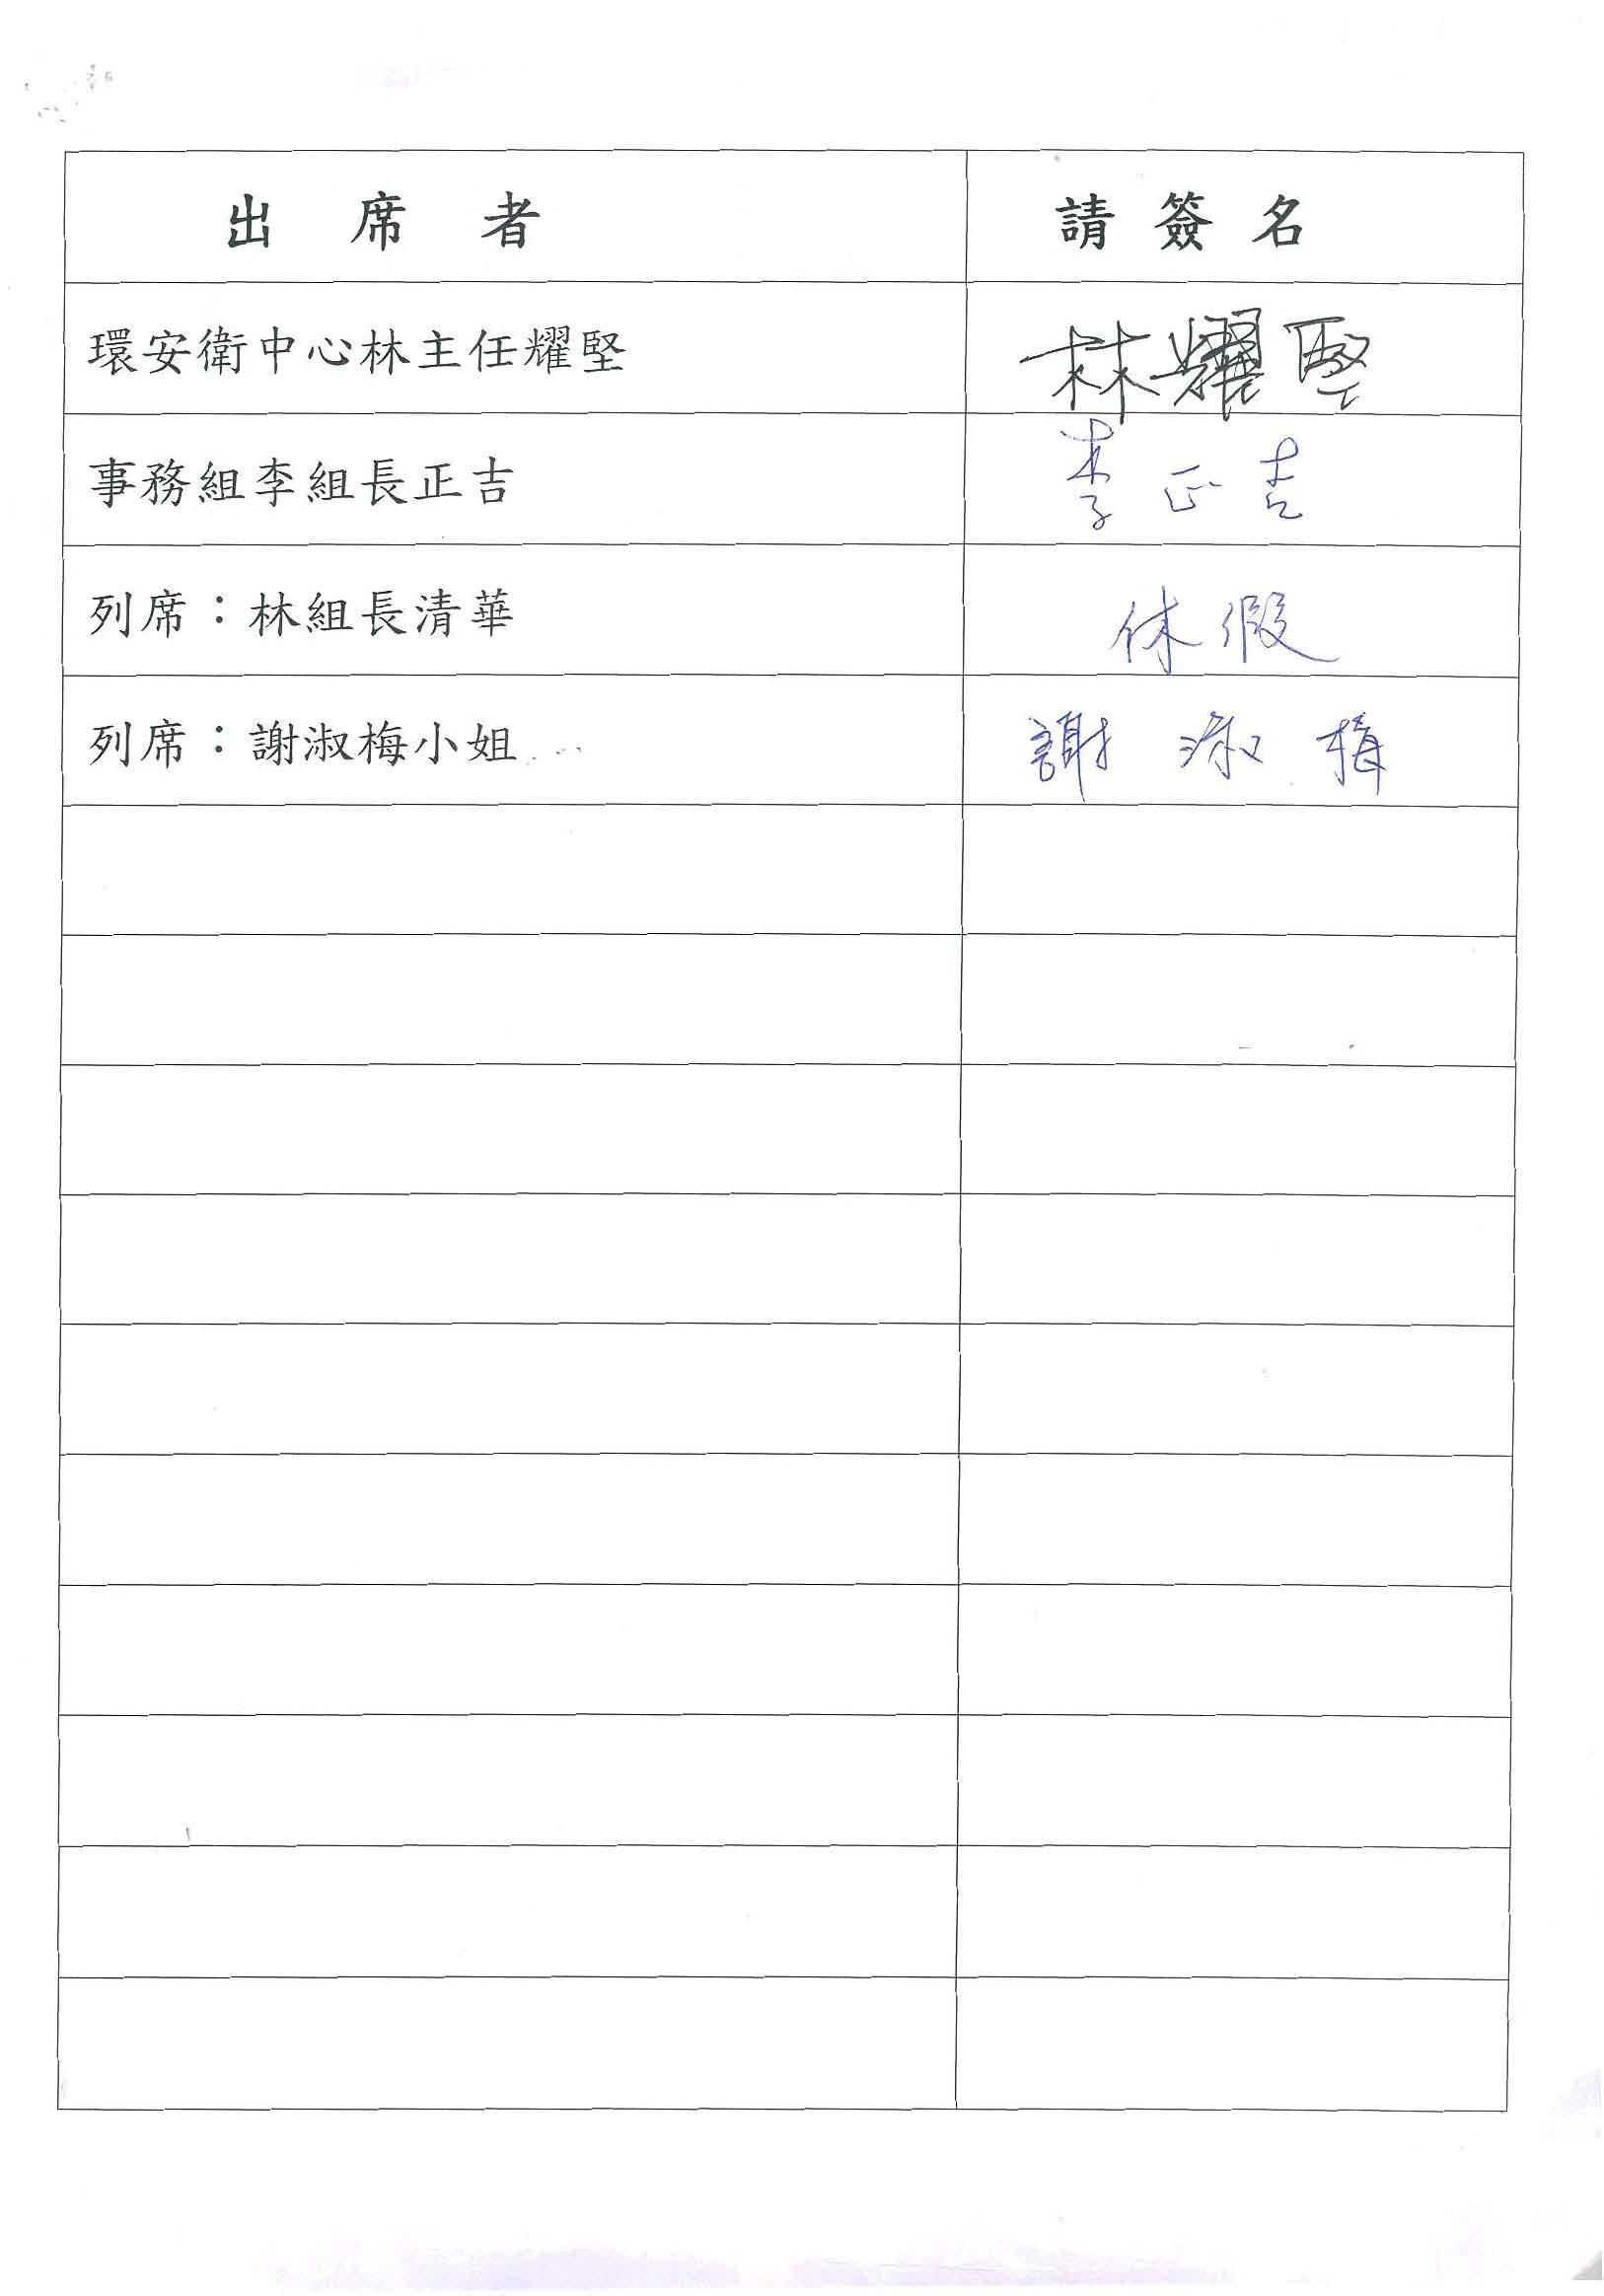 出席者 請簽名
環安衛中心林主任耀堅 林耀堅
事務組李組長正吉 李正吉
列席：林組長清華 休假
列席：謝淑梅小姐 謝淑梅